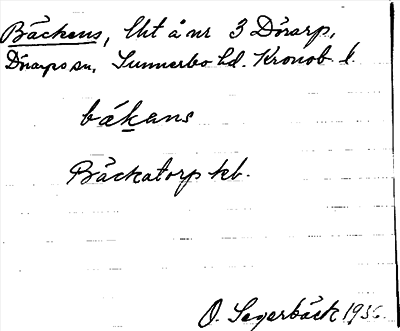 Bäckens, lht å nr 3 Dörarp,
Dörarps sn, Sunnerbo hd. Kronob. l.
bákans
Bäckatorp kb.
O. Segerbäck 1936